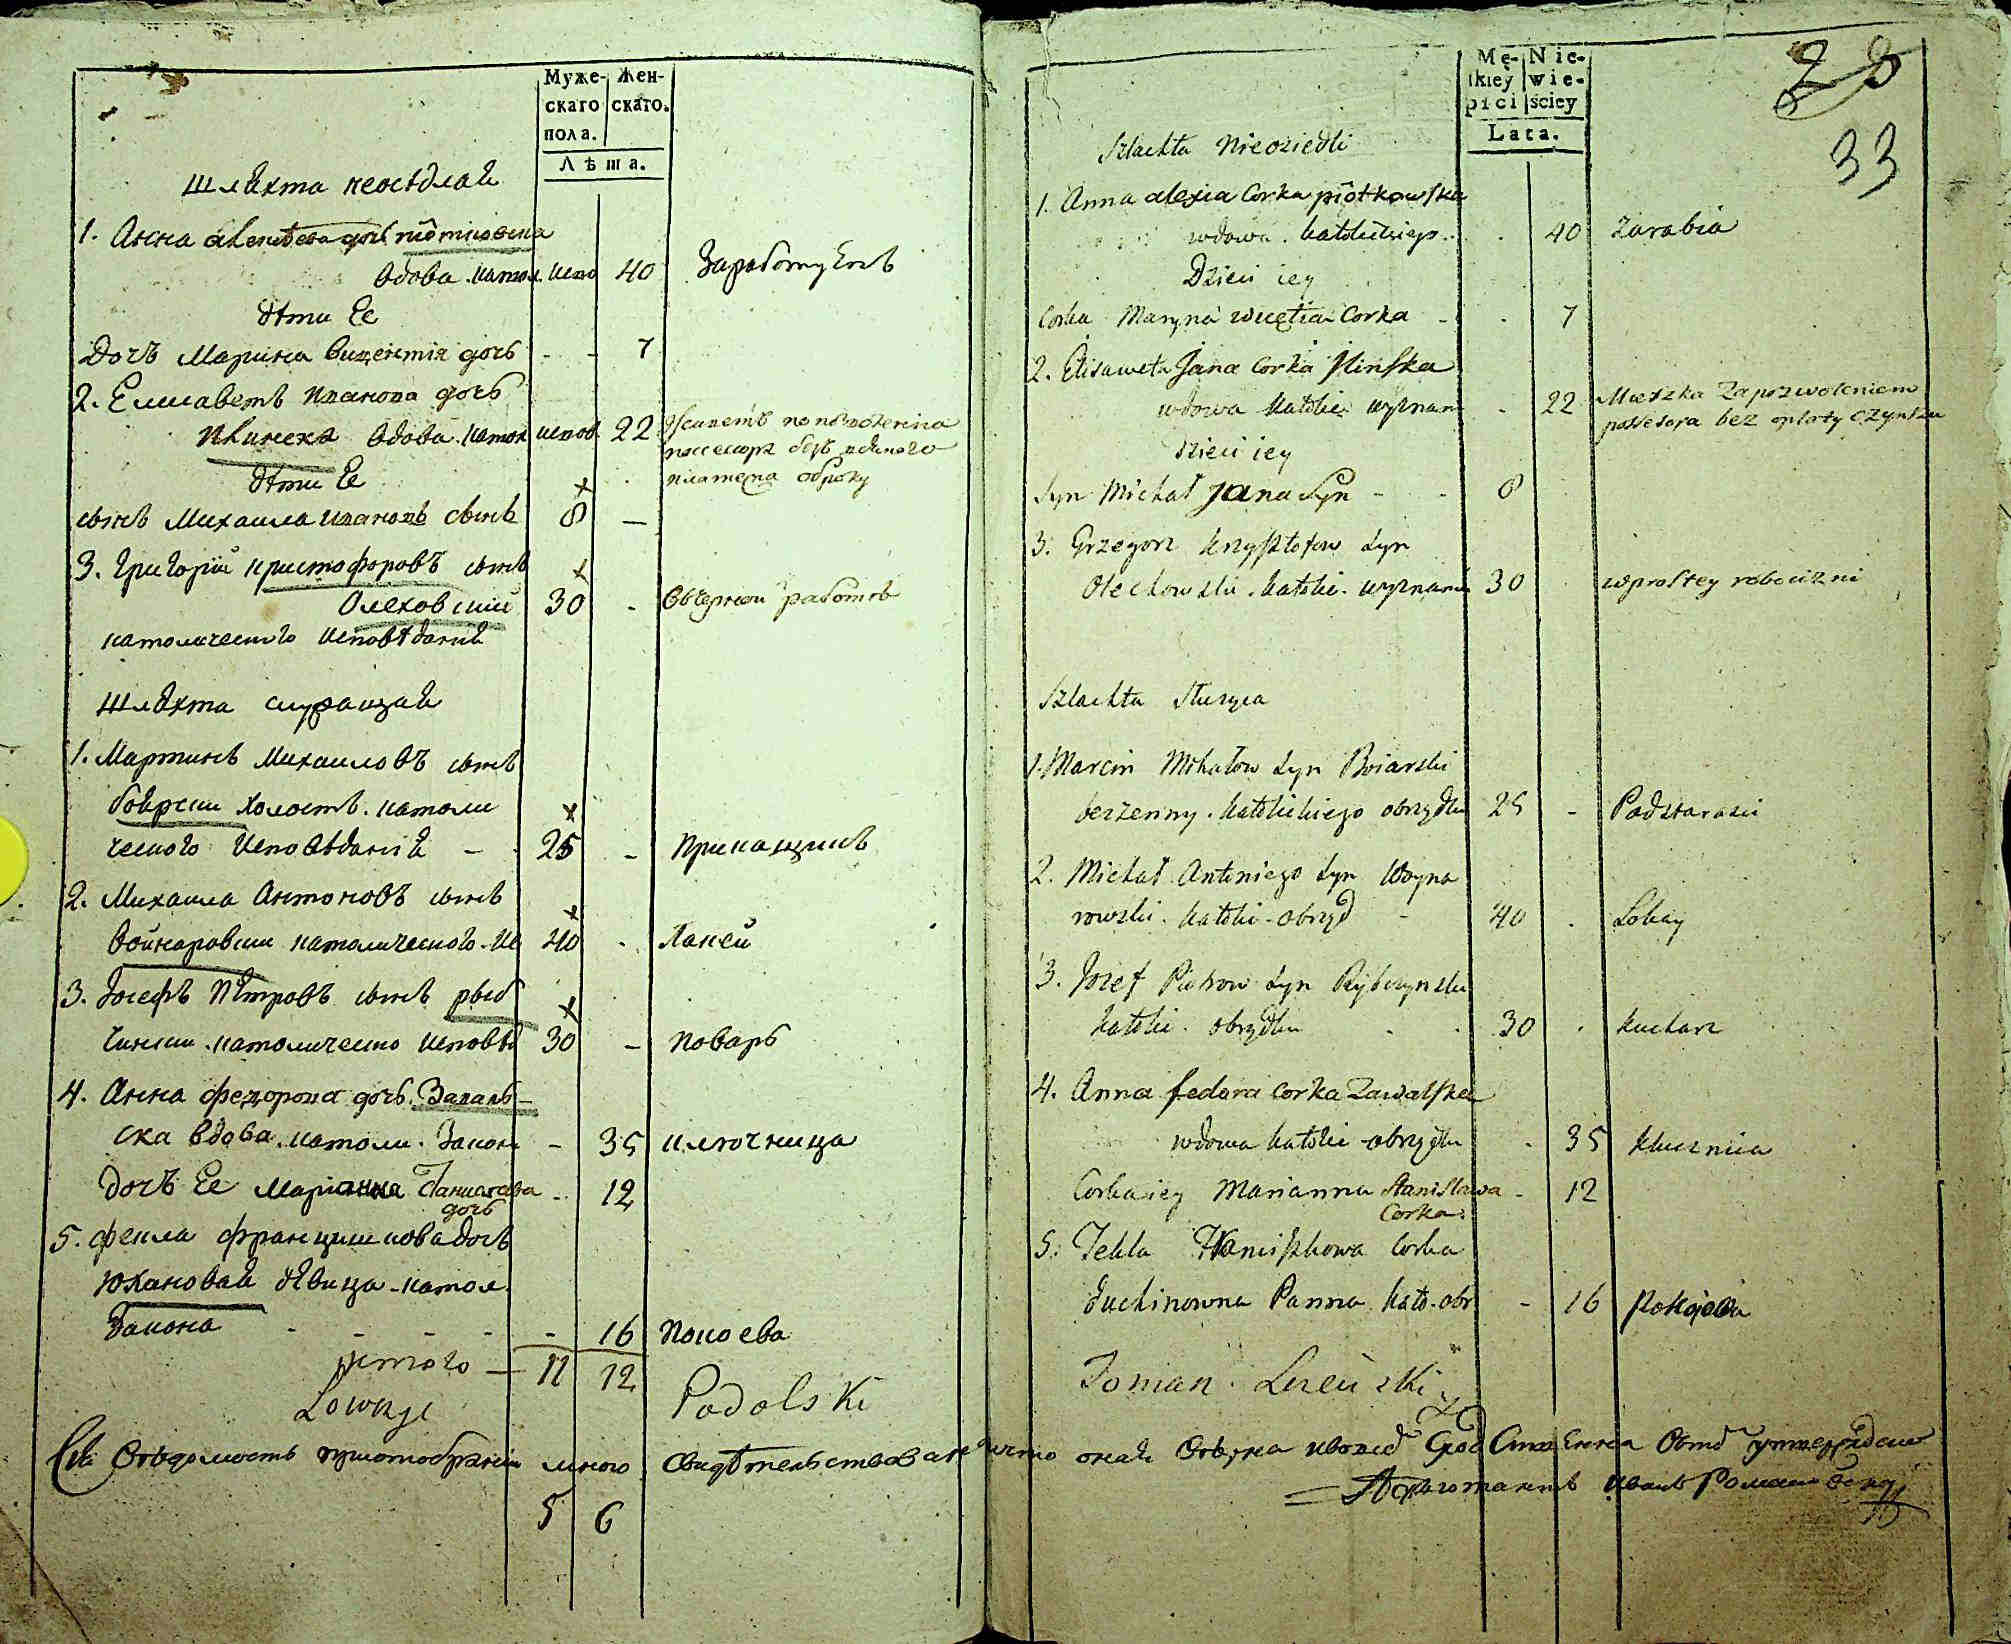 Муже- Жен-
скаго скаго.
пола.
Лѣта.
Шляхта неосѣдлая
1. Анна алексѣева дочь піотковска
вдова. катол. испо 40 Заработуетъ
дѣти Ее
Дочъ Марина вицентія дочь - - 7
2. Елисаветъ иванова дочь
Илинска вдова. катол испов. 22 Живетъ по позволенію
посессора безъ
платежа оброку
дѣти Ее
сынъ Михаила ивановъ сынъ 8 —
3. Григорій кристофоровъ сынъ
Олеховскій 30 - Въ черной работѣ
католическаго исповѣданія
Шляхта служащая
1. Мартинъ Михаиловъ сынъ
боярски холостъ. католи
ческого исповѣданія - 25 - Прикащикъ
2. Михаила Антоновъ сынъ
Войнаровски католического. ис 40 - Лакей
3. Іосефъ Петровъ сынъ рыб
чински. католическо исповѣд 30 - поваръ
4. Анна федорова дочь. Заваль-
ска вдова. католи. Закон - 35 ключница
дочъ Ее Маріанна Станиславова - 12
дочь
5. фекла францишкова дочъ
Юхановая дѣвица - катол.
Закона - - - - - 16 Покоева
итого — 11 12
Łowczy Podolski
Сія вѣдомость
5 6
Mę- Nie-
skiey wie-
płci ściey
Lata.
28
33
Szlachta Nieosiedli
1. Anna alexia Corka piotkowska
wdowa. katolickiego. - 40 zarabia
Dzieci iey
Corka Maryna wicętia Corka - - 7
2. Elisaweta Jana Corka Ilinska
wdowa katolic wyznan - 22 Mieszka za pozwoleniem
possesora bez opłaty czynszu
dzieci iey
Syn Michał Jana Syn - - 8
3. Grzegorz krzysztofow syn
Olechowski. katolic. wyznani 30 w prostey robocizni
Szlachta służąca
1. Marcin Michałow syn Boiarski
bezżenny. katolickiego obrządku 25 - Podstarosci
2. Michał Antoniego syn Woyna
rowski. katolic - obrząd - 40 . Lokay
3. Jozef Piotrow syn Rybczynski
katolic. obrządku - - 30 . kucharz
4. Anna fedora corka Zawalska
wdowa katolic - obrządku - 35 kluznica
Corka iey Marianna Stanislawa - 12
Corka.
5. Tekla Franciszkowa Corka
Juchinowna Panna kato - obr - 16 Pokojowa